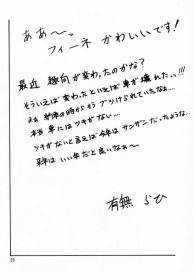 ああ～っ
フィーネ かわいいです!
最近 趣向が変わったのかな?
そういえば変わったといえば車が壊れた、、!!!
まぁ 納車の時からもうブツけられていたなぁ…
本当 車にはツキがない…
ツキがないと言えば今年はサンザンだったような…
来年はいい年だと良いなぁ～
有無 らひ
23